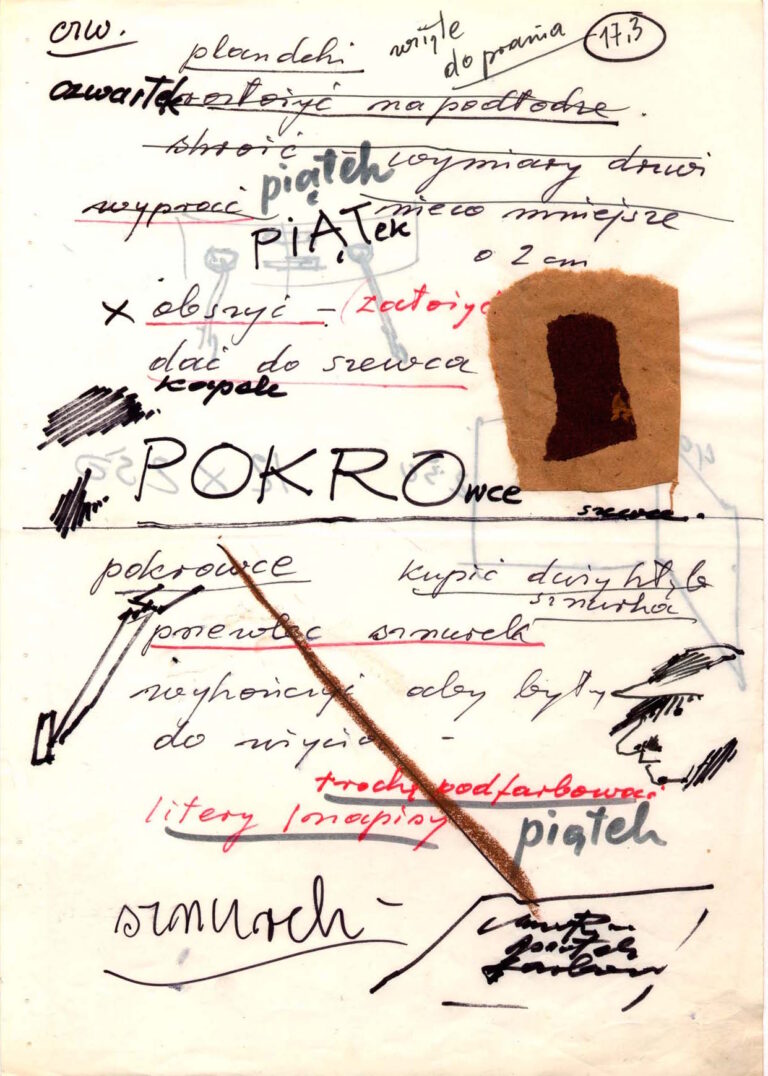 czw.
plandeki wzięte
do prania 17.3
czwartek rozłożyć na podłodze.
skroić wymiary drzwi
piątek
wyprać nieco mniejsze
PiĄTek
o 2 cm
x obszyć – (założyć
dać do szewca
POKROwce
szewce
pokrowce kupić duży kłęb
sznurka
przewlec sznurek
wykończyć aby były
do użycia –
trochę podfarbować
litery / napisy
piątek
sznurek –